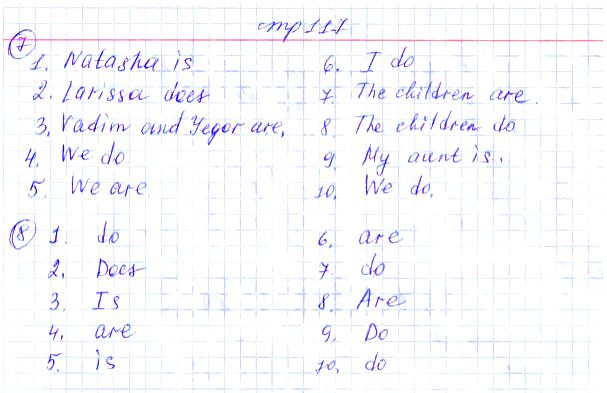 стр 117
7
1. Natasha is
2. Larissa does
3. Vadim and Yegor are.
4. We do
5. We are
6. I do
7. The children are.
8. The children do
9. My aunt is.
10. We do.
8
1. do
2. Does
3. Is
4. are
5. is
6. are
7. do
8. Are
9. Do
10. do